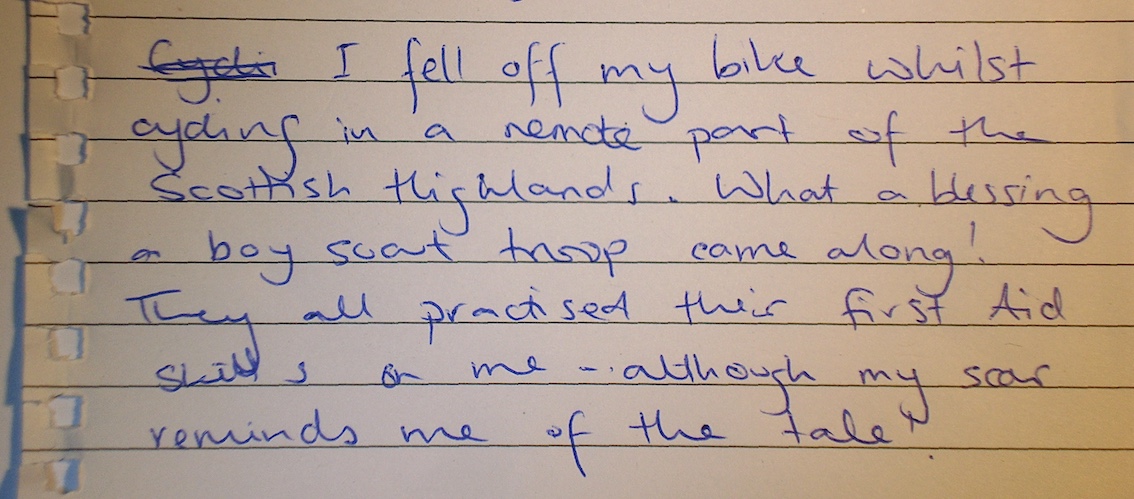 I fell off my bike whilst
cycling in a remote part of the
Scottish Highlands. What a blessing
a boy scout troop came along!
They all practised their first Aid
skills on me - although my scar
reminds me of the tale.